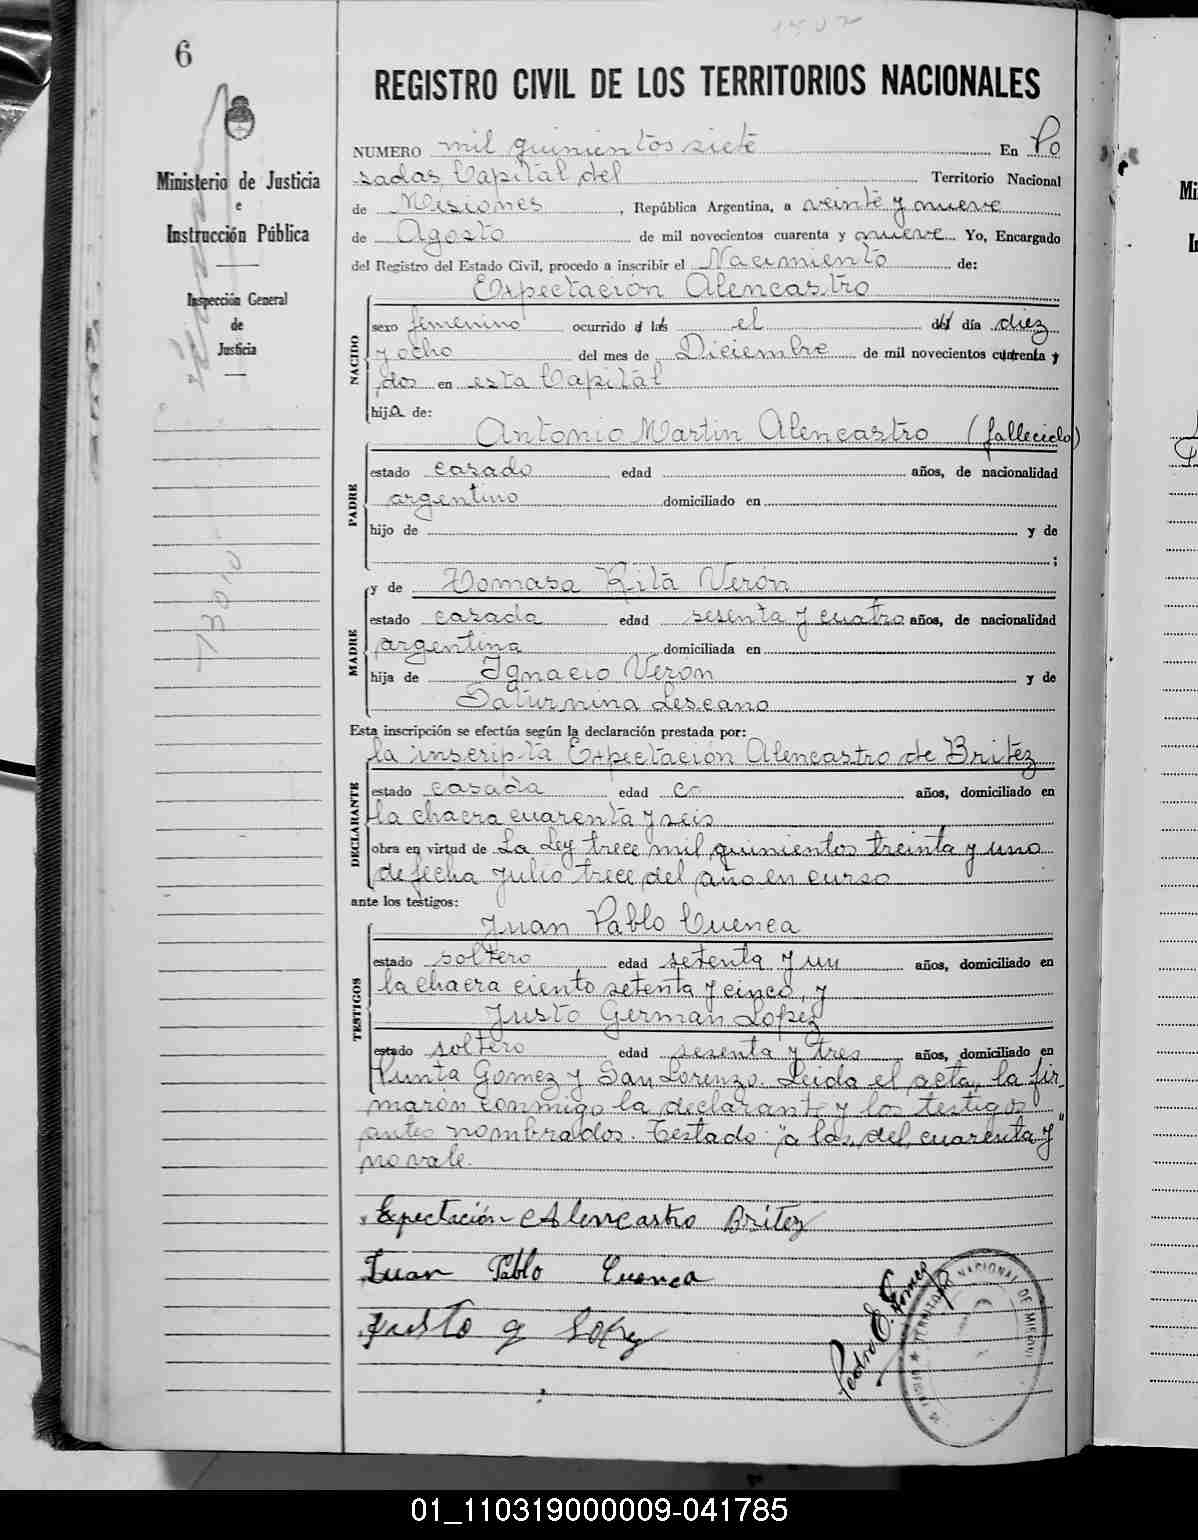 6
1507
REGISTRO CIVIL DE LOS TERRITORIOS NACIONALES
Ministerio de Justicia
e
Instrucción Pública
Inspección General
de
Justicia
NUMERO mil quinientos siete En Po
sadas, Capital del Territorio Nacional
de Misiones, República Argentina, a veinte y nueve
de Agosto de mil novecientos cuarenta y nueve Yo, Encargado
del Registro del Estado Civil, procedo a inscribir el Nacimiento de:
NACIDO
Expectación Alencastro
sexo femenino ocurrido a las el del día diez
y ocho del mes de Diciembre de mil novecientos cuarenta y
dos en esta Capital
hija de:
PADRE
Antonio Martin Alencastro (fallecido)
estado casado edad años, de nacionalidad
argentino domiciliado en
hijo de y de
;
MADRE
y de Tomasa Rita Verón
estado casada edad sesenta y cuatro años, de nacionalidad
argentina domiciliada en
hija de Ignacio Verón y de
Saturnina Lescano
Esta inscripción se efectúa según la declaración prestada por:
DECLARANTE
la inscripta Expectación Alencastro de Britez
estado casada edad años, domiciliado en
la chacra cuarenta y seis
obra en virtud de La Ley trece mil quinientos treinta y uno
de fecha Julio trece del año en curso
ante los testigos:
TESTIGOS
Juan Pablo Cuenca
estado soltero edad setenta y un años, domiciliado en
la chacra ciento setenta y cinco, y
Justo German Lopez
estado soltero edad sesenta y tres años, domiciliado en
Junta Gomez y San Lorenzo. Leida el acta, la fir_
marón conmigo la declarante y los testigos
antes nombrados. Testado: "a las, del, cuarenta y"
no vale.
Expectación Alencastro Britez
Juan Pablo Cuenca
Justo G Lopez
Pedro E. Gomez
TERRITORIO NACIONAL DE MISIONES
01_110319000009-041785